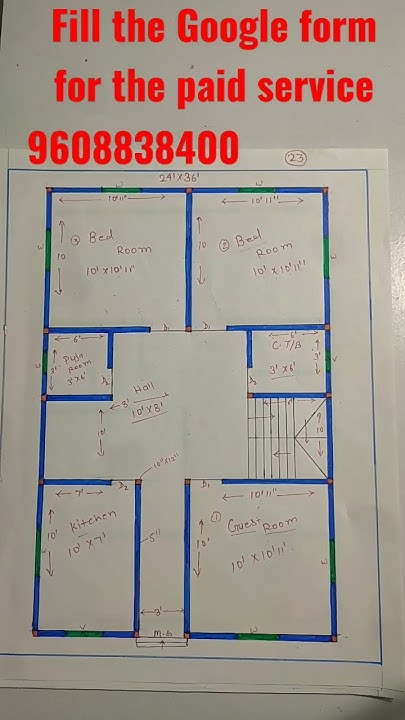 Fill the Google form
for the paid service
9608838400
23
24'X36'
W
W
10'11"
10'11"
W
10
③ Bed
Room
10' X 10'11"
10
② Bed
Room
10' X 10'11"
W
D₁
D₁
6'
6'
Puja
Room
3' X 6'
3'
D₂
C.T/B
3' X 6'
3'
V
D₂
Hall
8'
10' X 8'
10'
6'
10
10" X 12"
7'
D₂
D₁
10'11"
Kitchen
10' X 7'
10'
5"
① Guest Room
10' X 10'11"
10'
W
3'
V
M.G
W